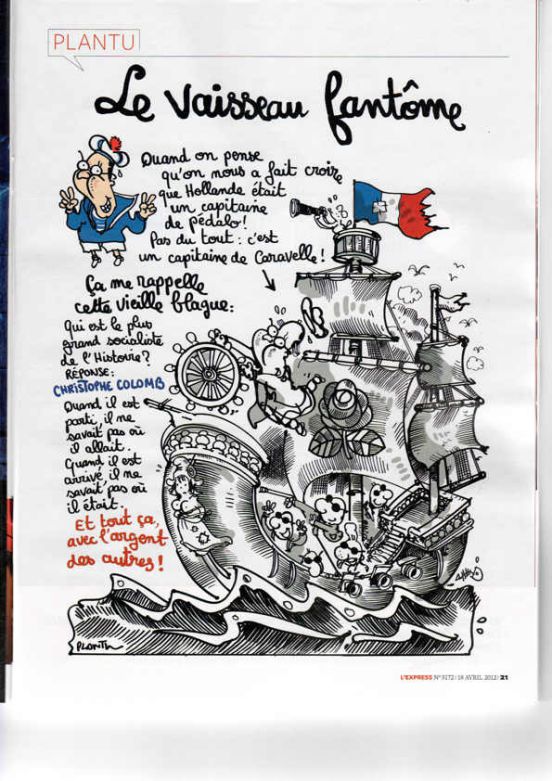 PLANTU
Le Vaisseau fantôme
Quand on pense
qu'on nous a fait croire
que Hollande était
un capitaine
de pédalo!
Pas du tout : c'est
un capitaine de Caravelle!
Ça me rappelle
cette vieille blague:
Qui est le plus
grand socialiste
de l'Histoire?
RÉPONSE:
CHRISTOPHE COLOMB
Quand il est
parti, il ne
savait pas où
il allait.
Quand il est
arrivé, il ne
savait pas où
il était.
Et tout ça,
avec l'argent
des autres!
PLANTU
L'EXPRESS N° 3172 / 18 AVRIL 2012 / 21